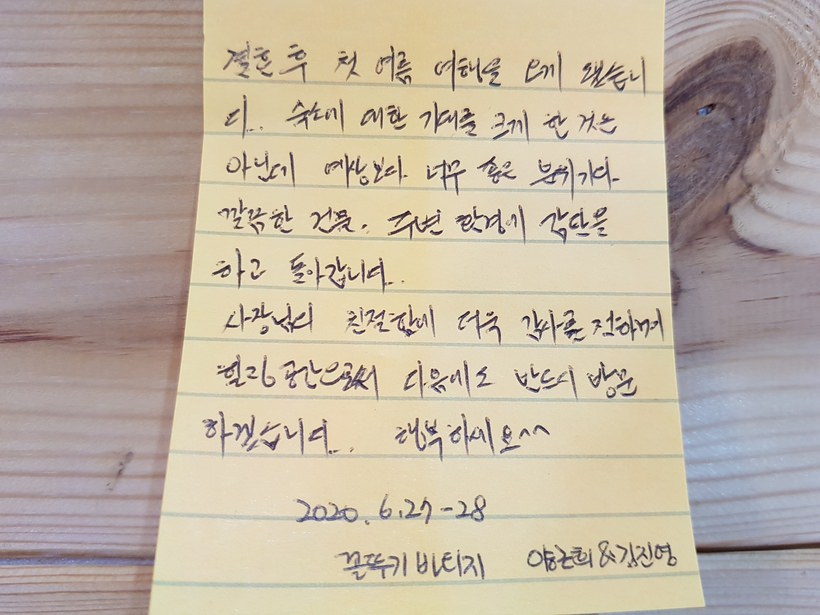 결혼 후 첫 여름 여행을 오게 됐습니
다.. 숙소에 대한 기대를 크게 한 것은
아닌데 예상보다 너무 좋은 분위기와
깔끔한 건물, 주변 환경에 감탄을
하고 돌아갑니다..
사장님의 친절함에 더욱 감사를 전하며
힐링 공간으로써 다음에도 반드시 방문
하겠습니다.. 행복하세요^^
2020. 6.27-28
꼴뚜기 바티지 양근희&김진영